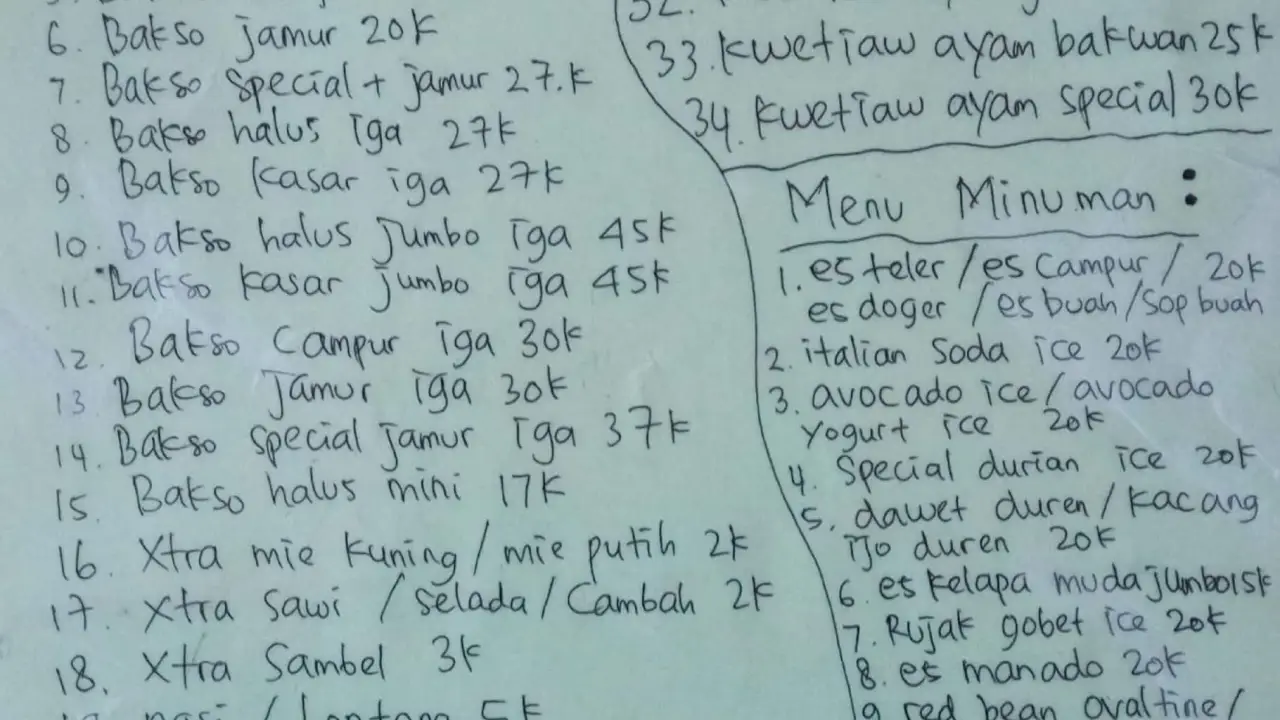 6. Bakso jamur 20k
7. Bakso special + jamur 27.k
8. Bakso halus iga 27k
9. Bakso kasar iga 27k
10. Bakso halus jumbo iga 45k
11. Bakso kasar jumbo iga 45k
12. Bakso Campur iga 30k
13 Bakso Jamur iga 30k
14. Bakso special jamur iga 37k
15. Bakso halus mini 17k
16. Xtra mie kuning / mie putih 2k
17. Xtra Sawi / selada / Cambah 2k
18. Xtra Sambel 3k
/ 5k
32.
33. Kwetiaw ayam bakwan 25k
34. Kwetiaw ayam special 30k
Menu Minuman :
1. es teler / es Campur / 20k
es doger / es buah / sop buah
2. italian Soda ice 20k
3. avocado ice / avocado
yogurt ice 20k
4. Special durian ice 20k
5. dawet duren / kacang
ijo duren 20k
6 es kelapa muda jumbo 15k
7. Rujak gobet ice 20k
8. es manado 20k
9 red bean ovaltine /